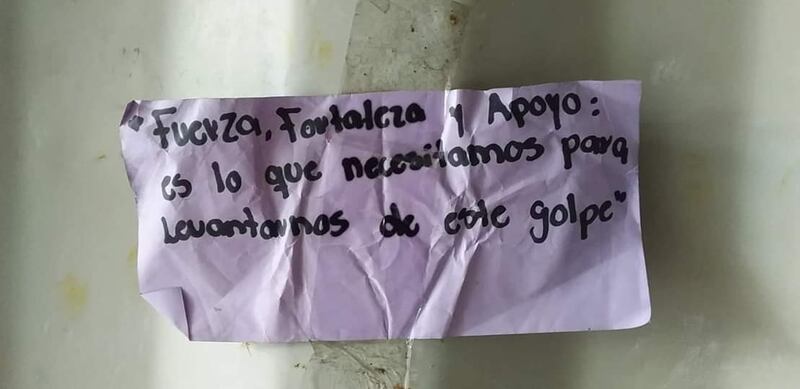 "Fuerza, Fortaleza y Apoyo:
es lo que necesitamos para
Levantarnos de este golpe"